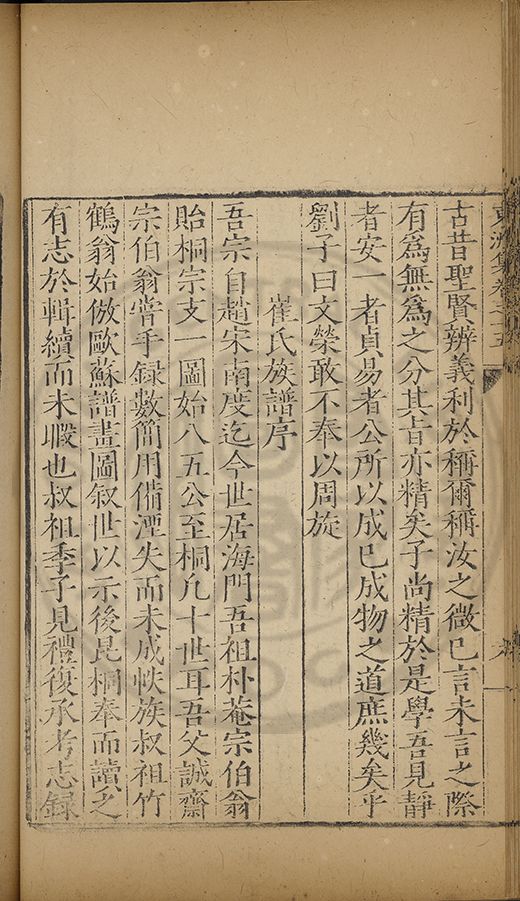 東洲集卷之十五
古昔聖賢辨義利於稱爾稱汝之微已言未言之際
有爲無爲之分其旨亦精矣子尚精於是學吾見靜
者安一者貞易者公所以成已成物之道庶幾矣乎
劉子曰文榮敢不奉以周旋
崔氏族譜序
吾宗自趙宋南度迄今世居海門吾祖朴菴宗伯翁
貽桐宗支一圖始八五公至桐凡十世耳吾父誠齋
宗伯翁嘗手録數簡用備湮失而未成帙族叔祖竹
鶴翁始倣歐蘇譜畫圖叙世以示後昆桐奉而讀之
有志於輯續而未暇也叔祖季子見禮復承考志録